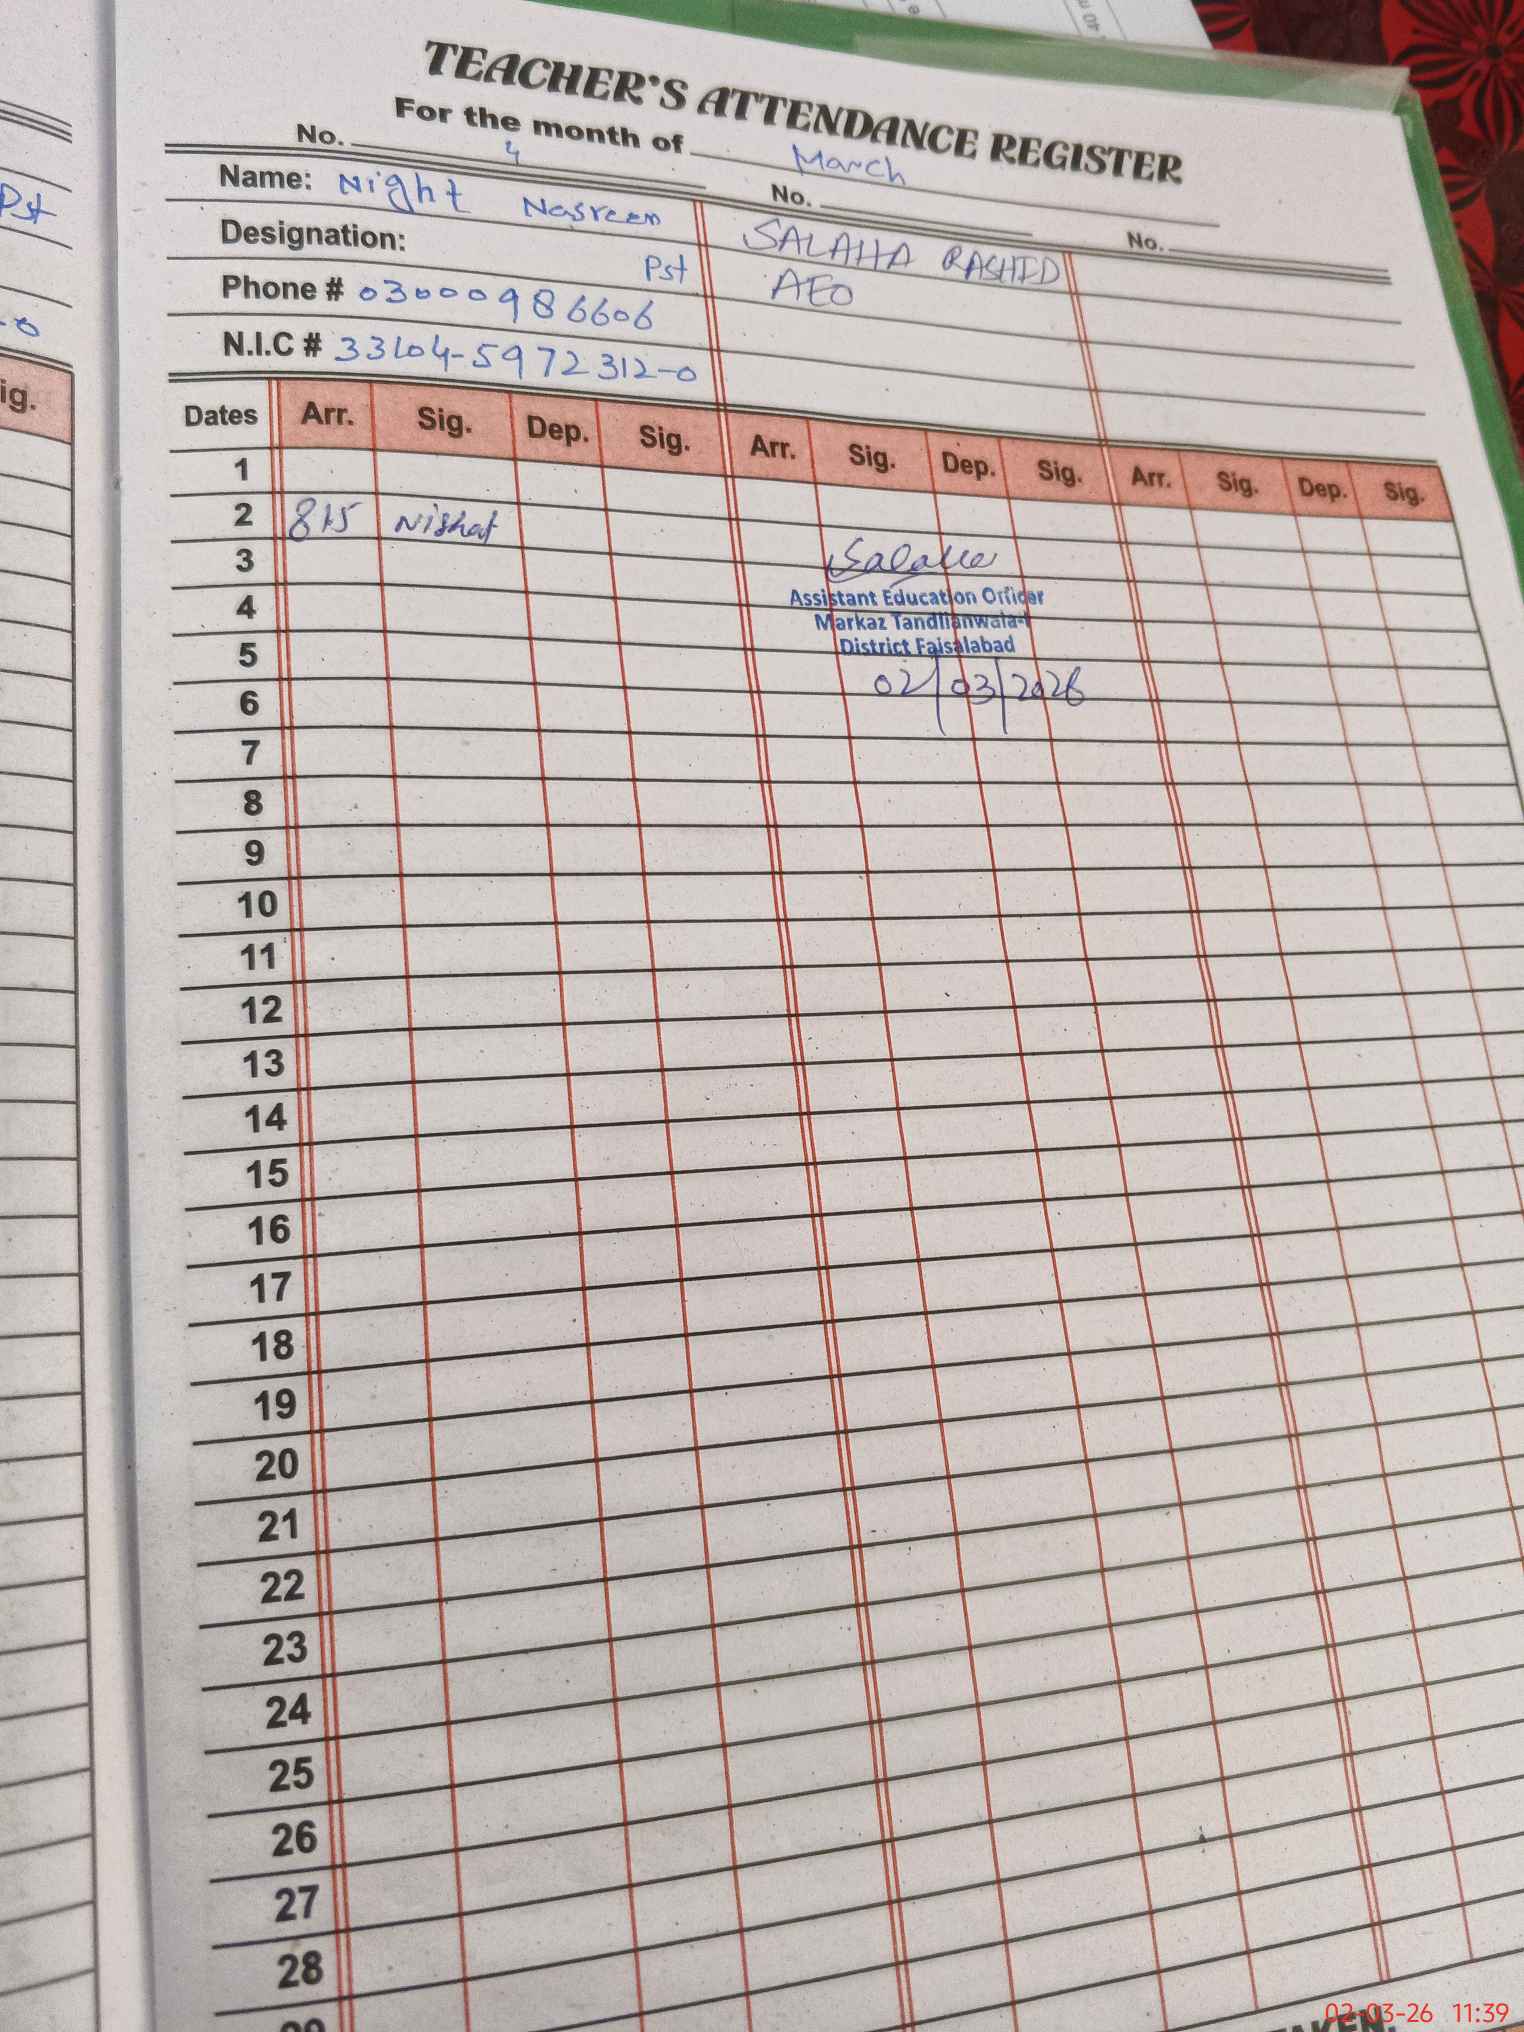 TEACHER'S ATTENDANCE REGISTER
For the month of March
No. 4 No. No.
Name: Night Nasreen SALAHA RASHID
Designation: Pst AEO
Phone # 03000986606
N.I.C # 33104-5972312-0
Dates Arr. Sig. Dep. Sig. Arr. Sig. Dep. Sig. Arr. Sig. Dep. Sig.
1
2 815 Nishat
3 Salaha
4 Assistant Education Officer
Markaz Tandlianwala-I
5 District Faisalabad
6 02/03/2026
7
8
9
10
11
12
13
14
15
16
17
18
19
20
21
22
23
24
25
26
27
28
29
TAKEN.
Pst
-0
ig.
02-03-26 11:39